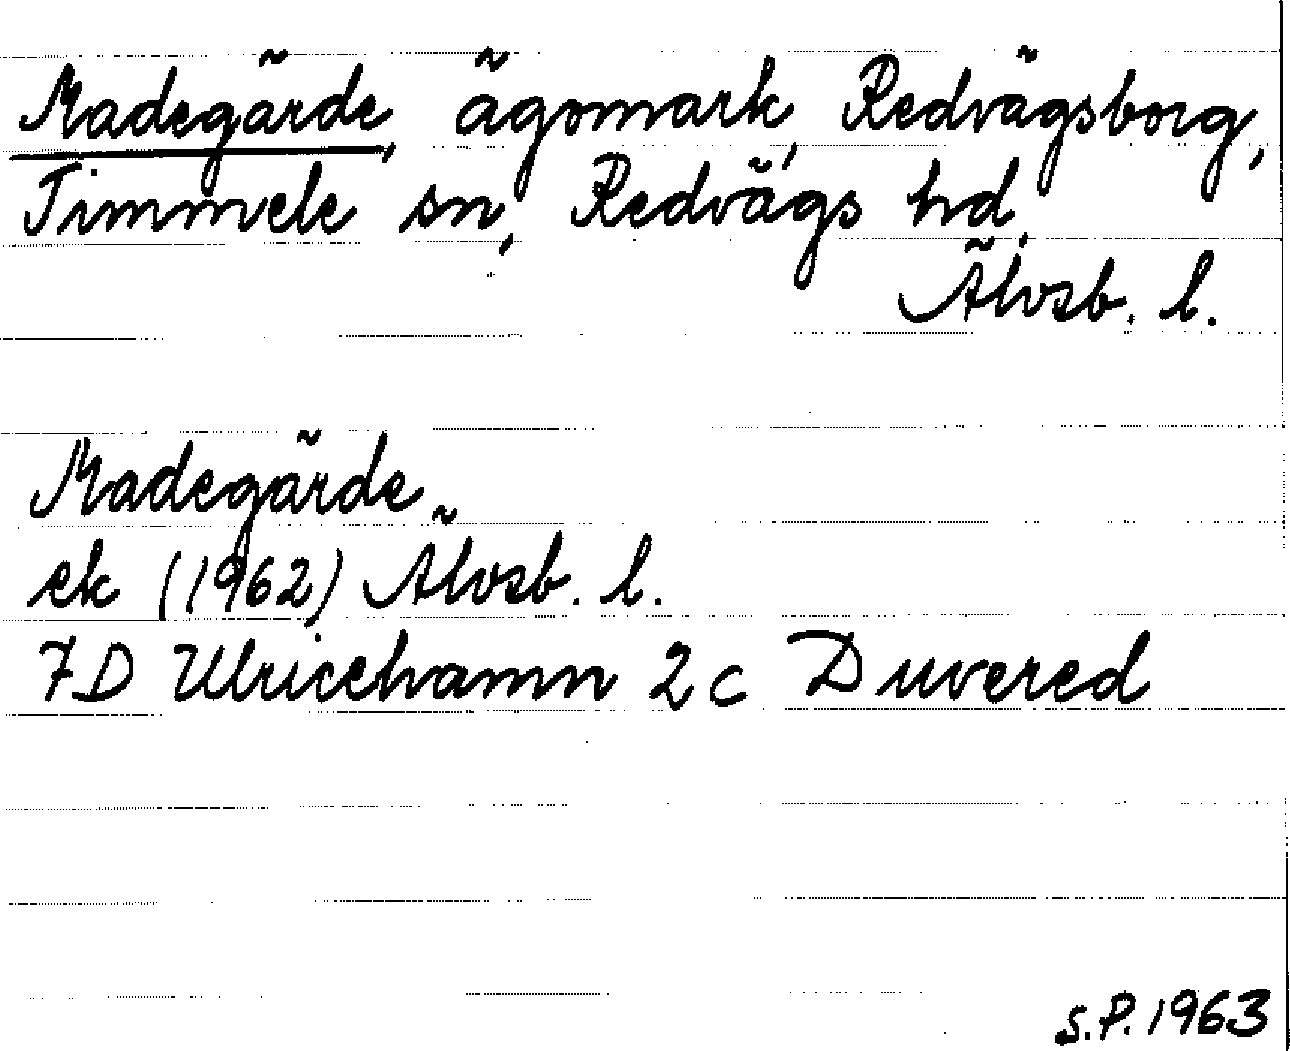 Madegärde, ägomark, Redvägsborg,
Timmele sn, Redvägs hd,
Älvsb. l.
Madegärde
ek (1962) Älvsb. l.
7D Ulricehamn 2c Duvered
S.P. 1963